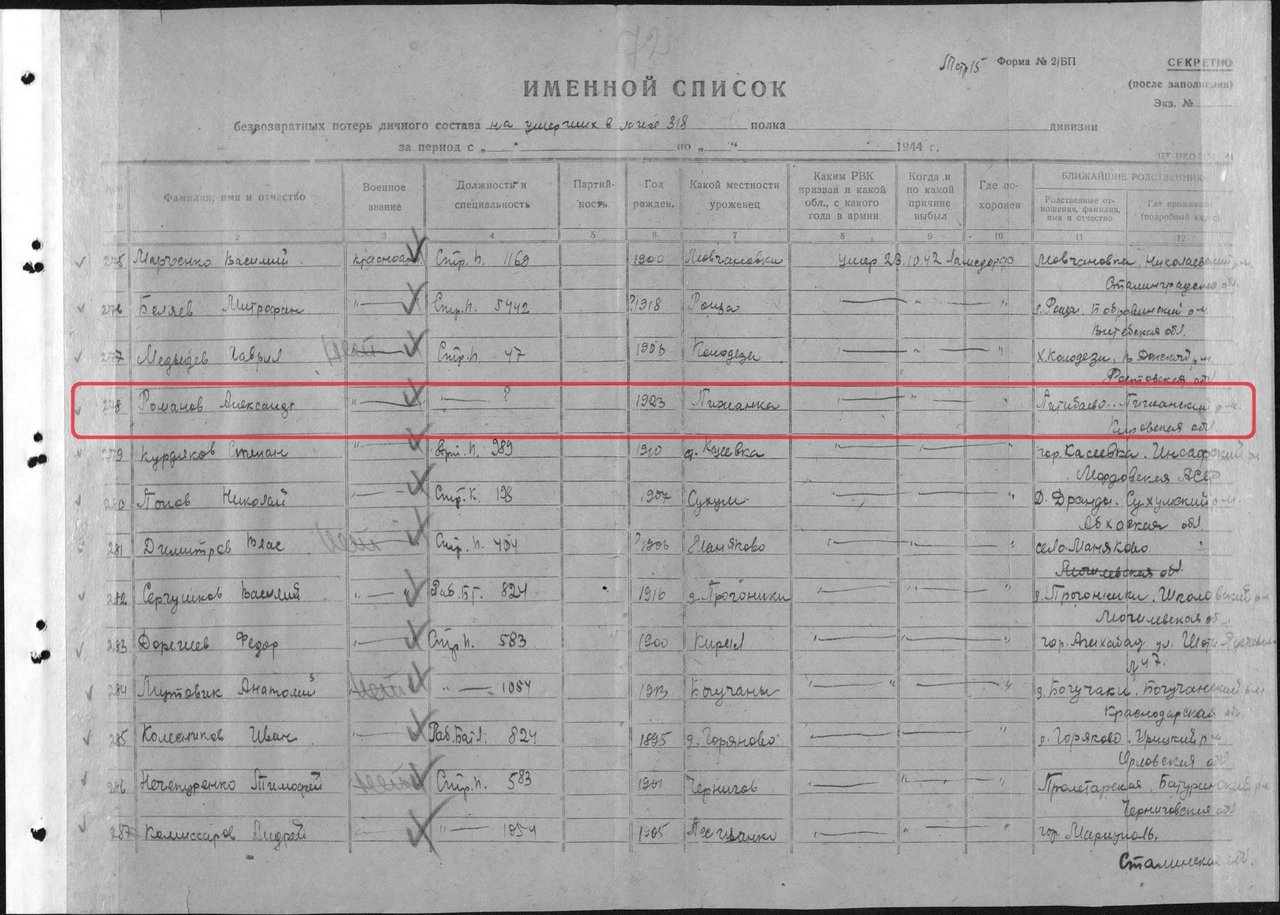 Форма № 2/БП
СЕКРЕТНО
(после заполнения)
Экз. №
ИМЕННОЙ СПИСОК
безвозвратных потерь личного состава на умерших в 318 полка дивизии
за период с „ " по „ " 1944 г.
Фамилия, имя и отчество Военное звание Должность и специальность Партийность Год рожден. Какой местности уроженец Каким РВК призван и какой обл., с какого года в армии Когда и по какой причине выбыл Где похоронен БЛИЖАЙШИЕ РОДСТВЕННИКИ
Родственные отношения, фамилия, имя и отчество Где проживают (подробный адрес)
2 3 4 5 6 7 8 9 10 11 12
275 Марченко Василий Красноарм. Стр. п. 1169 1900 Мовчановки умер 23.10.42 Ламсдорф Мовчановка, Николаевский р-н.
Сталинградской обл.
276 Беляев Митрофан "—" Стр. п. 5442 ?1918 Роща "—" "—" " д. Роща Бобровинский р-н
Витебская обл.
277 Медведев Гаврил Стр. п. 47 1903 Колодези "—" "—" " х. Колодези, Донской р-н.
Ростовская обл.
278 Романов Александр "—" "—" ? 1923 Пижанка "—" "—" " Ахтибаево. Пижанский р-н.
Кировская обл.
279 Курдяков Степан "—" Арт. п. 989 1910 "—" "—" " гор. Касеевка. Инсарский р-н
Мордовская АССР
280 Попов Николай "—" Стр. К. 196 1907 Сухум "—" "—" " Д. Дранды. Сухумский р-н
Абхаская обл.
281 Димитров Влас Стр. п. 404 ?1906 Маняково "—" "—" " село Маняково
Могилевская обл.
282 Сергушков Василий "—" Раб. БТ. 824 1916 д. Прогоники "—" "—" " д. Прогоники. Шкловский р-н
Могилевская об.
283 Федор "—" Стр. п. 583 1900 "—" "—" " гор. Ашхабад ул.
№47.
284 Анатолий "—" 1054 1913 Богучаны "—" "—" " д. Богучаки. Богучанский р-н
Краснодарская обл.
285 Колесников Иван "—" Раб. Бат. 824 1895 д. Горяново "—" "—" " д. Горяково. Урицкий р-н
Орловский обл.
286 Нечепуренко Тимофей Стр. п. 583 1901 Чернигов "—" "—" " Пролетарская. Батуринский р-н
Черниговская обл.
287 Комиссаров Андрей "—" "—" 1054 1905 "—" "—" " гор. Мариуполь.
Сталинская обл.